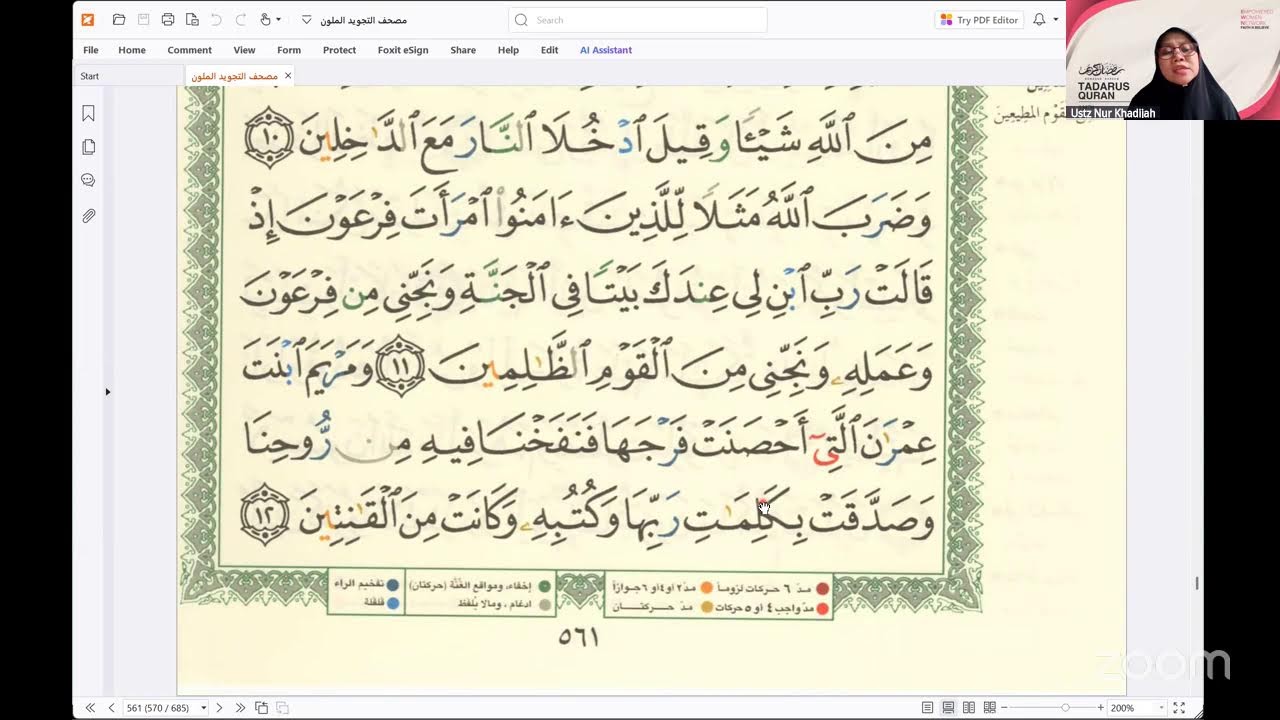 مصحف التجويد الملون
Search
Try PDF Editor
File Home Comment View Form Protect Foxit eSign Share Help Edit AI Assistant
Start
مصحف التجويد الملون
EMPOWERED
WOMEN
NETWORK
TADARUS
QURAN
Ustz Nur Khadijah
القوم المطيعين
مِنَ ٱللَّهِ شَيْـًٔا وَقِيلَ ٱدْخُلَا ٱلنَّارَ مَعَ ٱلدَّٰخِلِينَ ١٠
وَضَرَبَ ٱللَّهُ مَثَلًا لِّلَّذِينَ ءَامَنُوا۟ ٱمْرَأَتَ فِرْعَوْنَ إِذْ
قَالَتْ رَبِّ ٱبْنِ لِى عِندَكَ بَيْتًا فِى ٱلْجَنَّةِ وَنَجِّنِى مِن فِرْعَوْنَ
وَعَمَلِهِۦ وَنَجِّنِى مِنَ ٱلْقَوْمِ ٱلظَّٰلِمِينَ ١١ وَمَرْيَمَ ٱبْنَتَ
عِمْرَٰنَ ٱلَّتِىٓ أَحْصَنَتْ فَرْجَهَا فَنَفَخْنَا فِيهِ مِن رُّوحِنَا
وَصَدَّقَتْ بِكَلِمَٰتِ رَبِّهَا وَكُتُبِهِۦ وَكَانَتْ مِنَ ٱلْقَٰنِتِينَ ١٢
مدّ ٦ حركات لزوماً مدّ ٢ أو ٤ أو ٦ جوازاً إخفاء، ومواقع الغُنَّة (حركتان) تفخيم الراء
مدّ واجب ٤ أو ٥ حركات مدّ حركتان ادغام، ومالا يُلفظ قلقلة
٥٦١
zoom
561 (570 / 685)
200%